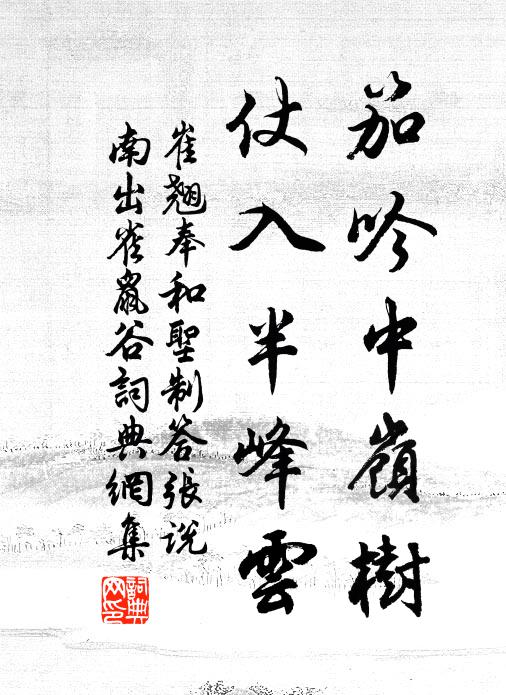 笳吟中嶺樹
仗入半峰雲
崔翹奉和聖制答張說
南出雀鼠谷詞典網集
詞典網印